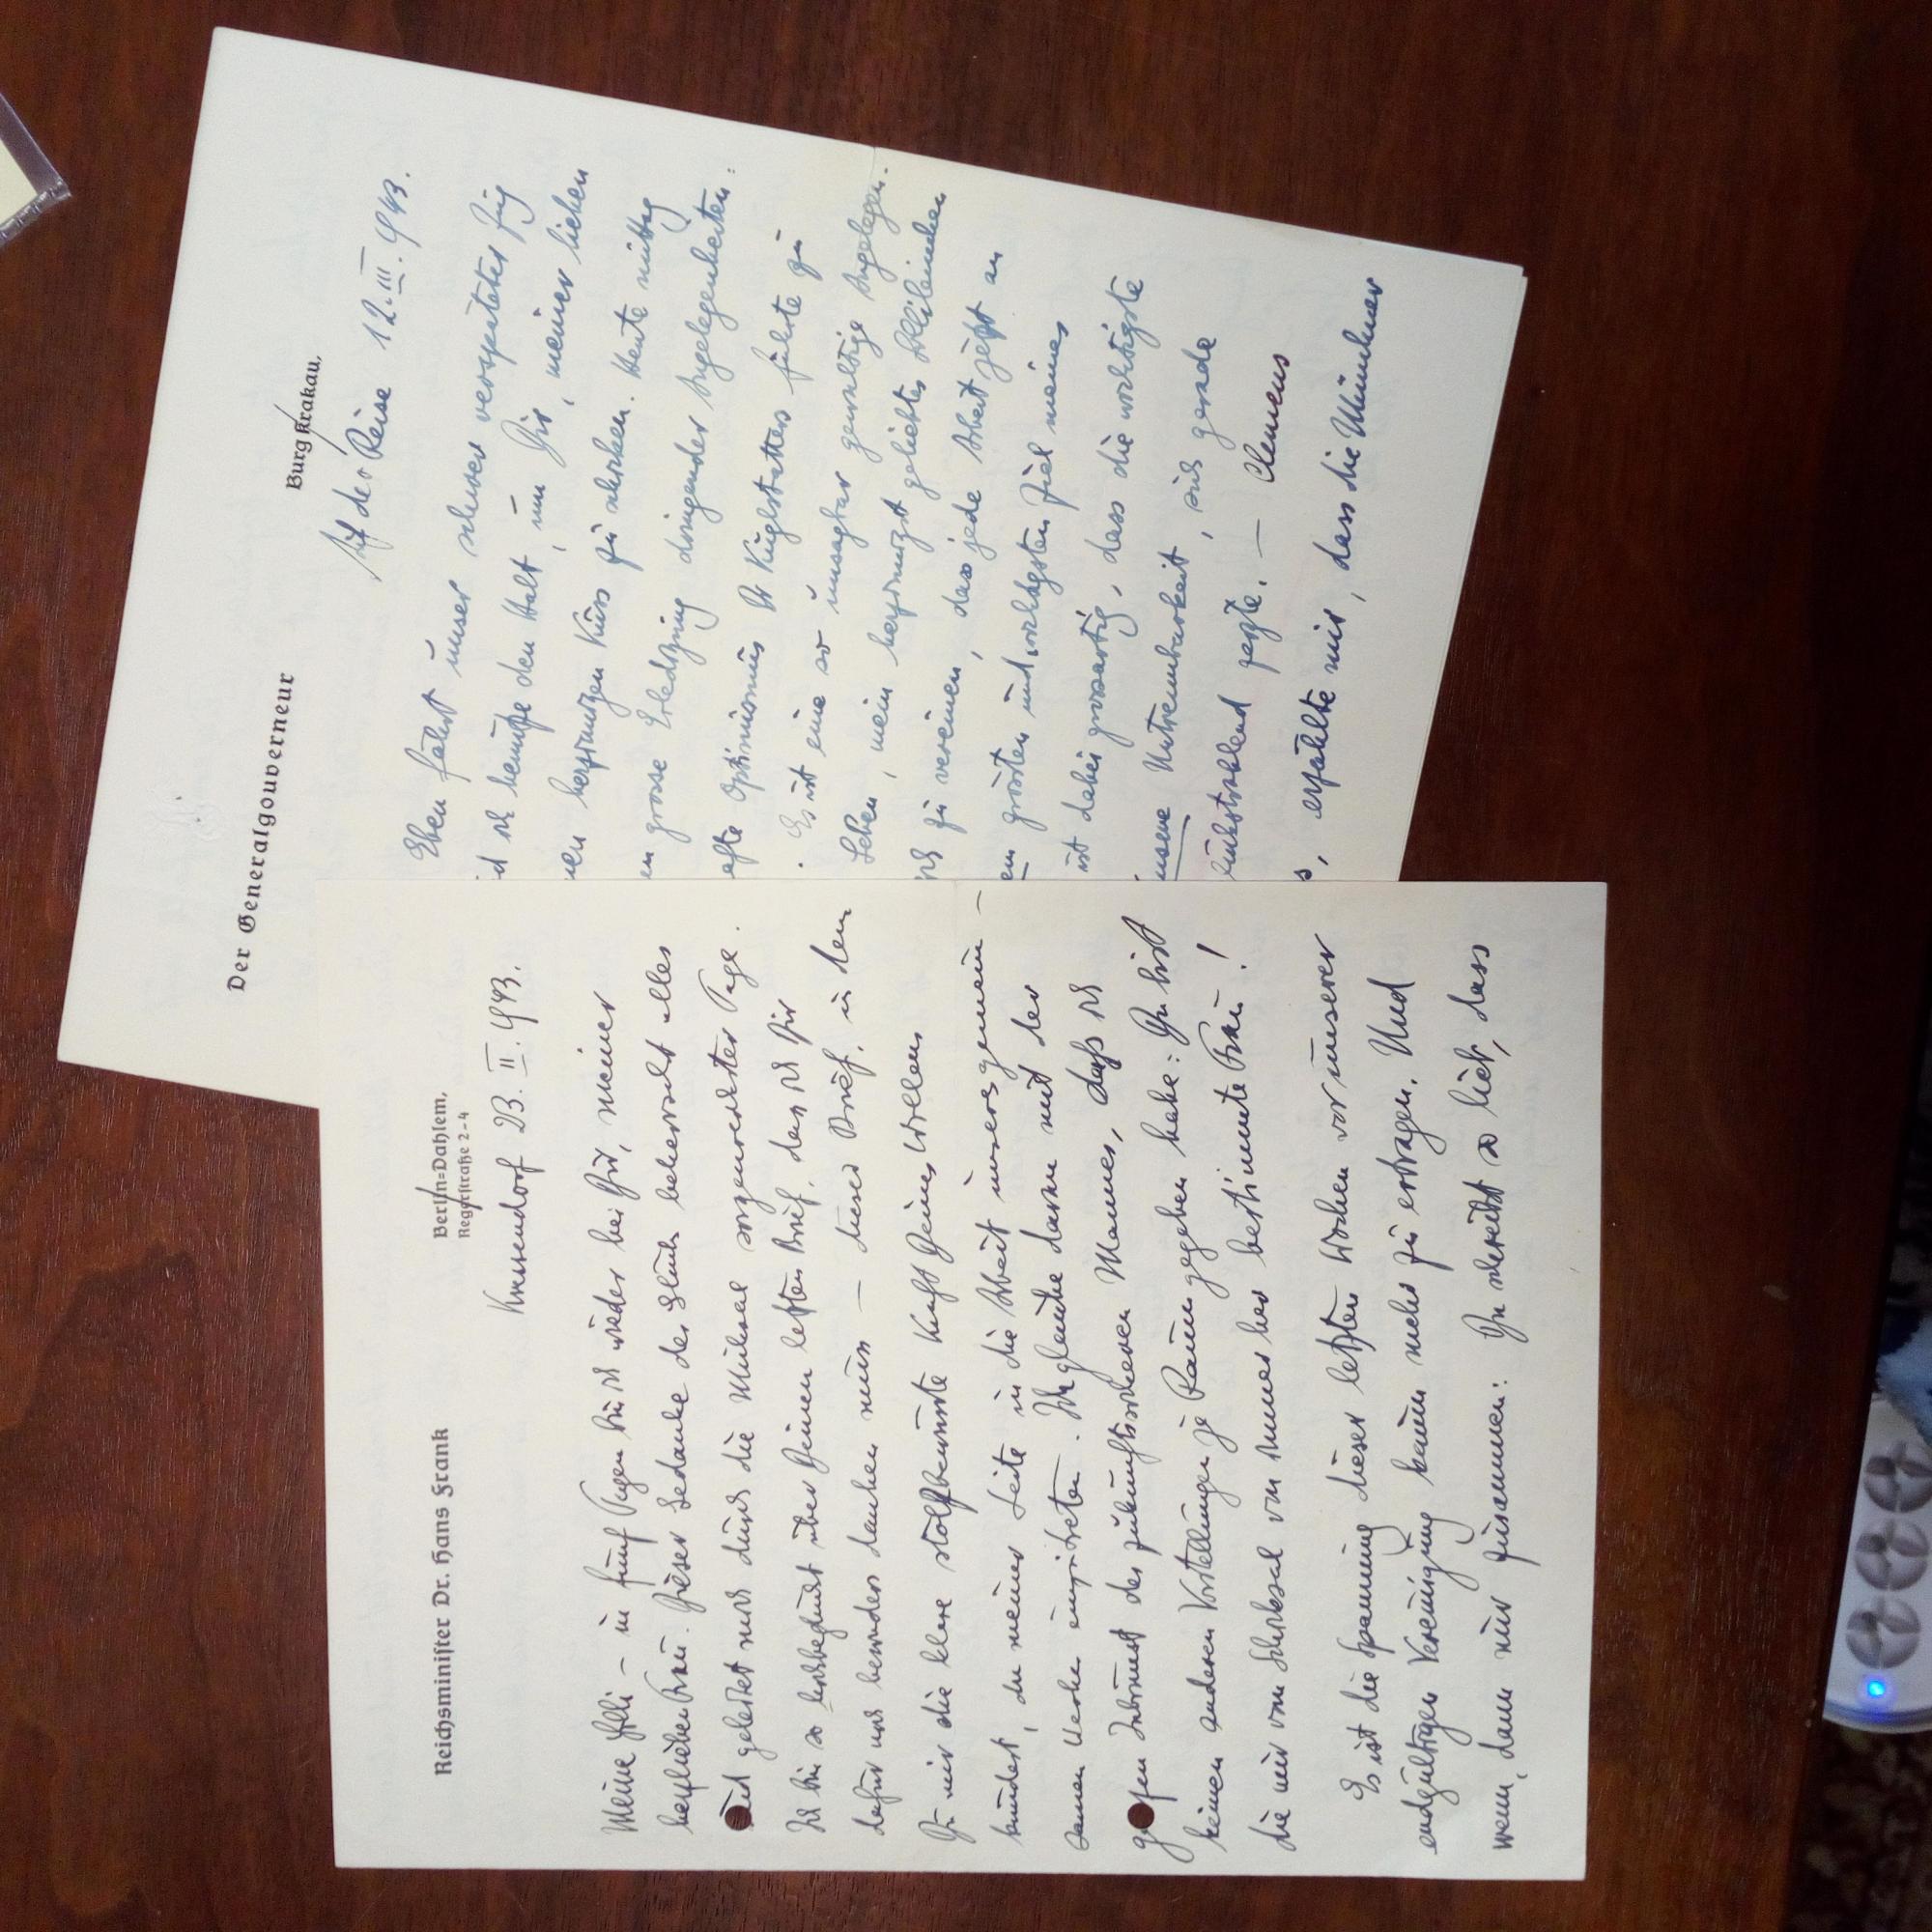 Der Generalgouverneur
Burg Krakau,
Auf der Reise 12.III.1943.
Eben fährt unser schwer verspäteter Zug
ich benütze den Halt, um Dir, meiner lieben
herzinnigen Kuss zu schicken. Heute mittag
grosse Erledigung dringender Angelegenheiten:
Optimismus Dr Küglstatters führte zu
. Es ist eine so unsagbar gewaltige Angelegen-
Leben, mein herzinnigst geliebtes
zu vereinen, dass jede Arbeit jetzt an
grössten und wichtigsten Ziel meines
ist dabei grossartig, dass die wichtigste
unsere Untrennbarkeit, sich gerade
zeigte. — Clemens
, erzählte mir, dass die Münchner
Reichsminister Dr. Hans Frank
Berlin-Dahlem,
Regerstraße 2-4
Kressendorf 23.II.1943.
Meine Lilli – in fünf Tagen bin ich wieder bei Dir, meiner
herzlieben Frau. Dieser Gedanke des Glücks beherrscht alles
und geleitet mich durch die Mühsal sorgenreichster Tage.
Ich bin so hochbeglückt über Deinen letzten Brief, den ich Dir
dafür noch besonders danken muss – dieser Brief, in dem
Du mir die klare stolzbewusste Kraft Deines Wollens
kündest, an meiner Seite in die Arbeit unseres gemein-
samen Werkes einzutreten. Ich glaube daran mit der
ganzen Inbrunst des zukunftssicheren Mannes, dass ich
keinen anderen Vorstellungen je Raum gegeben habe: Du bist
die mir vom Schicksal von immer her bestimmte Frau!
Es ist die Spannung dieser letzten Wochen vor unserer
endgültigen Vereinigung kaum mehr zu ertragen. Und
wenn, dann nur zusammen: Du schreibst so lieb, dass